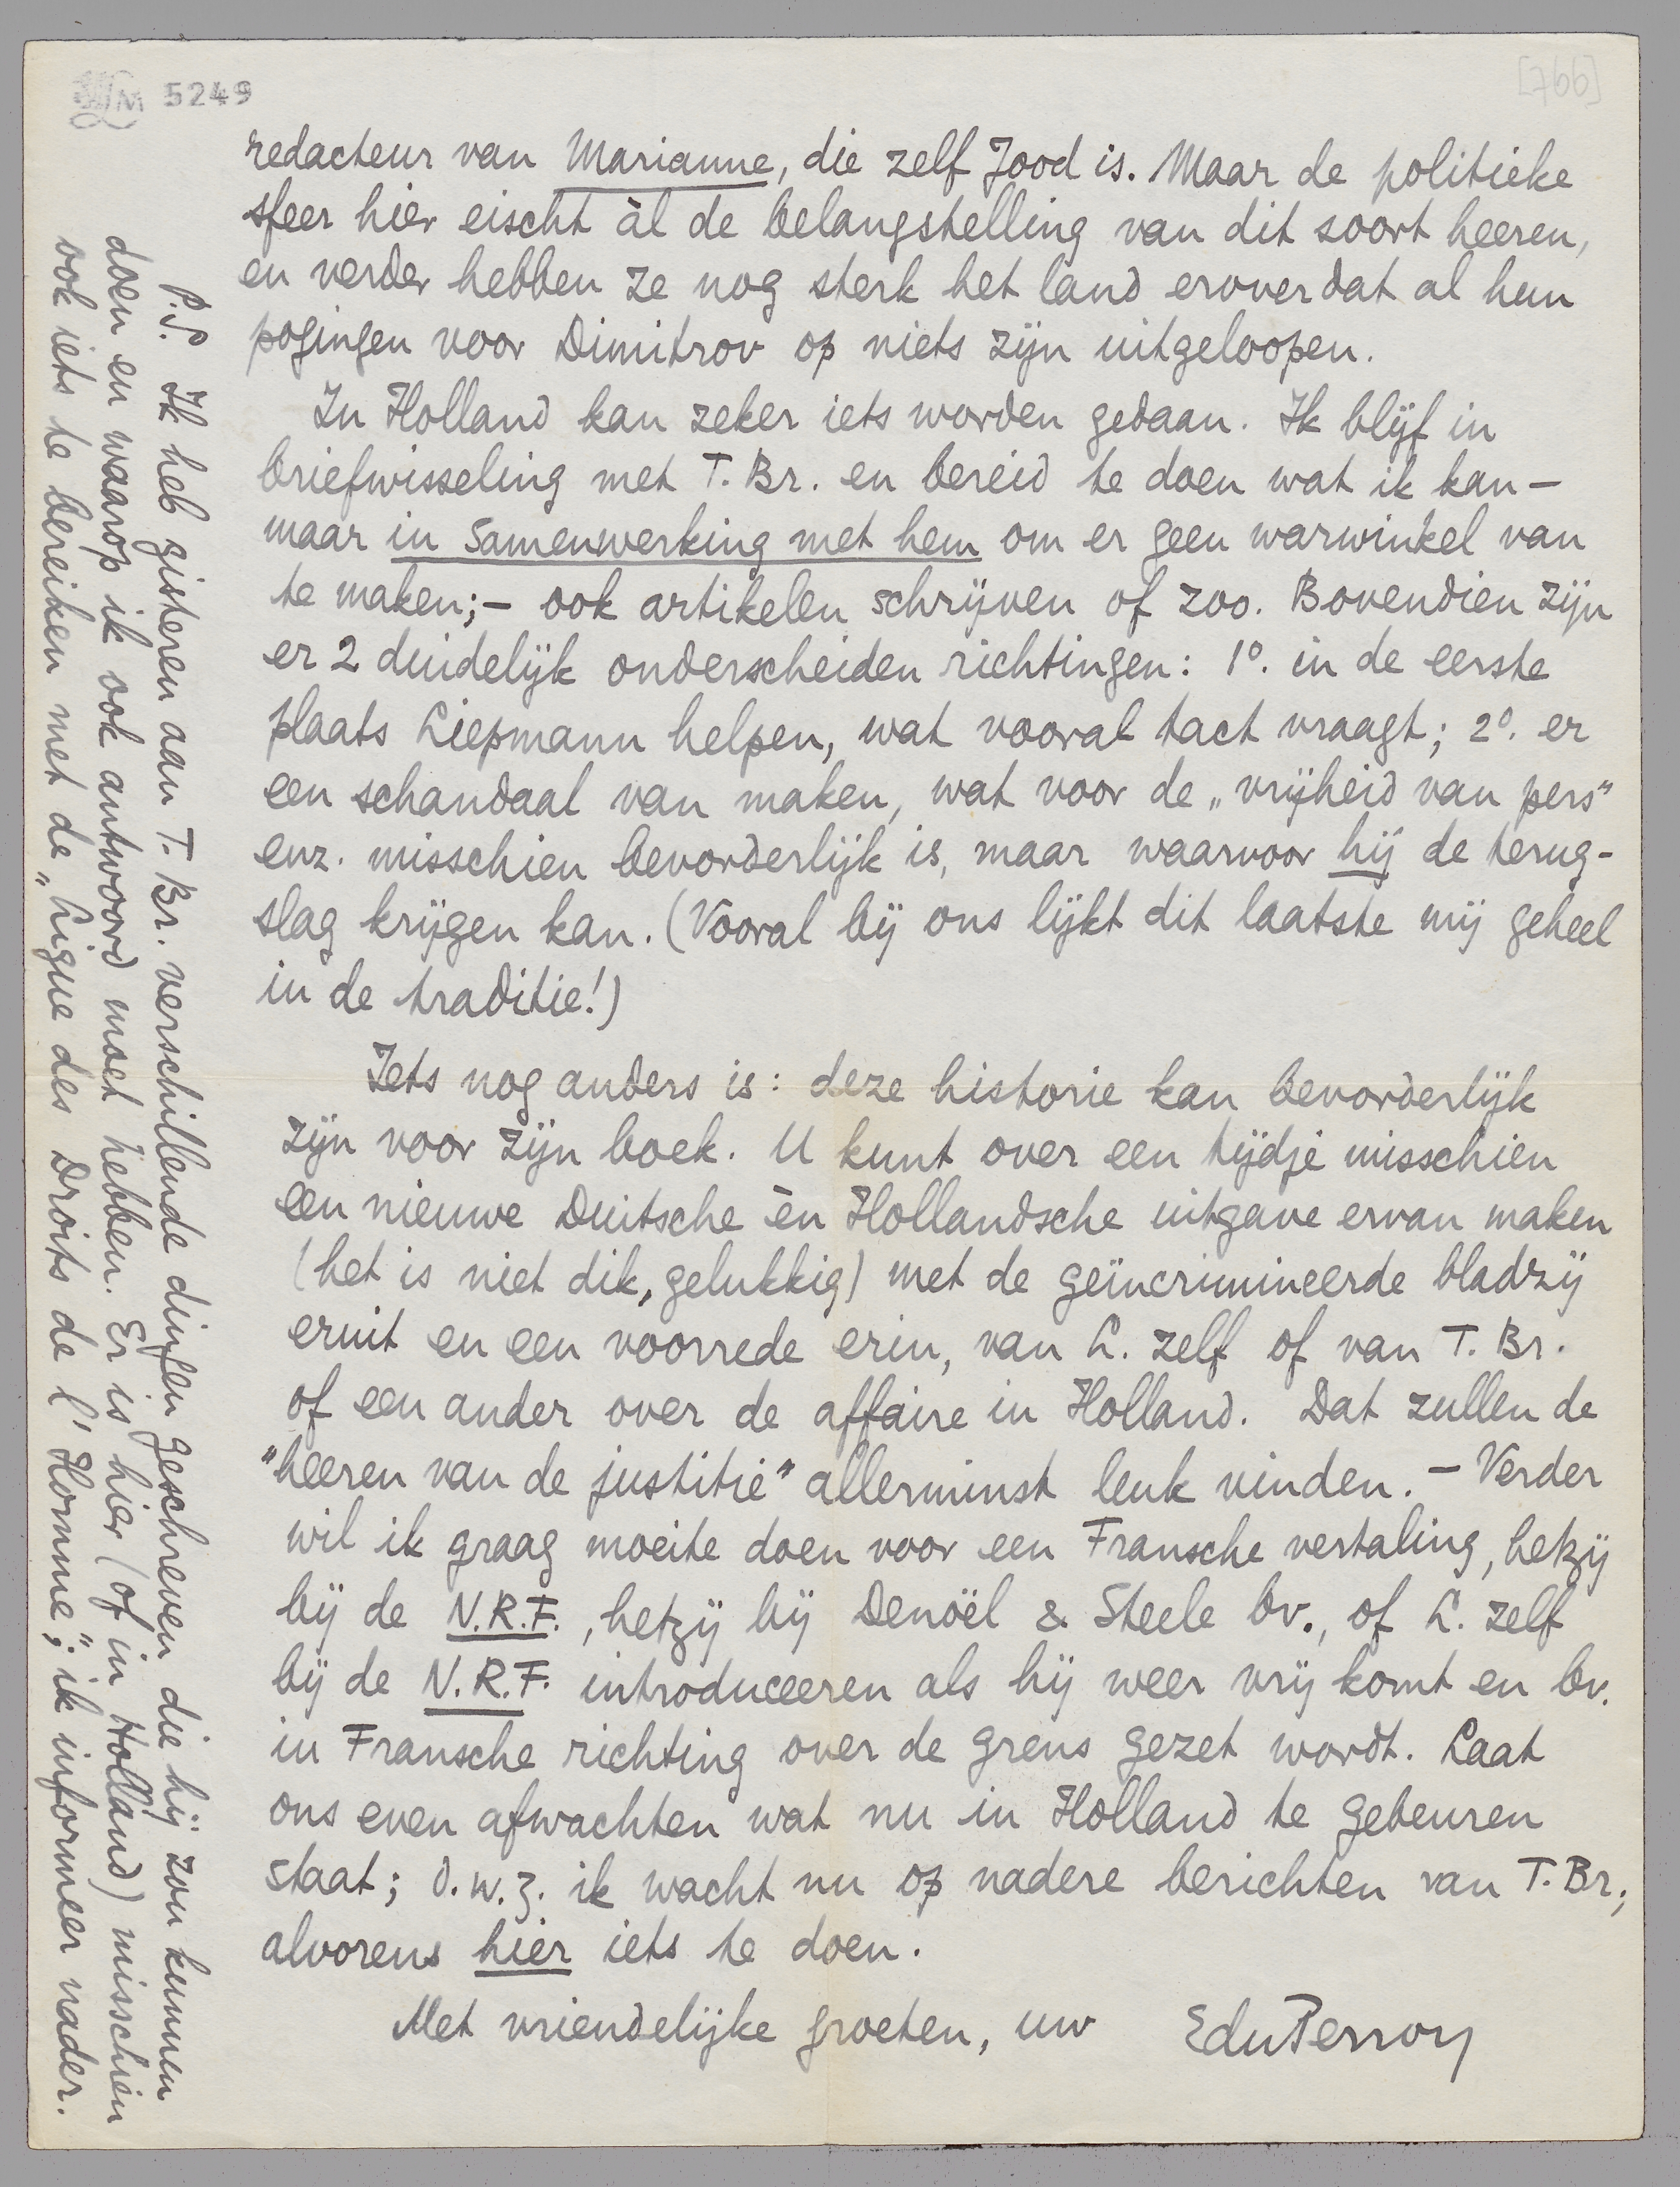 5249
[766]
redacteur van Marianne, die zelf Jood is. Maar de politieke
sfeer hier eischt àl de belangstelling van dit soort heeren,
en verder hebben ze nog sterk het land erover dat al hun
pogingen voor Dimitrov op niets zijn uitgeloopen.
In Holland kan zeker iets worden gedaan. Ik blijf in
briefwisseling met T. Br. en bereid te doen wat ik kan –
maar in samenwerking met hem om er geen warwinkel van
te maken; – ook artikelen schrijven of zoo. Bovendien zijn
er 2 duidelijk onderscheiden richtingen: 1º. in de eerste
plaats Liepmann helpen, wat vooral tact vraagt; 2º. er
een schandaal van maken, wat voor de „vrijheid van pers"
enz. misschien bevorderlijk is, maar waarvoor hij de terug-
slag krijgen kan. (Vooral bij ons lijkt dit laatste mij geheel
in de traditie!)
Iets nog anders is: deze historie kan bevorderlijk
zijn voor zijn boek. U kunt over een tijdje misschien
een nieuwe Duitsche èn Hollandsche uitgave ervan maken
(het is niet dik, gelukkig) met de geïncrimineerde bladzij
eruit en een voorrede erin, van L. zelf of van T. Br.
of een ander over de affaire in Holland. Dat zullen de
"heeren van de justitie" allerminst leuk vinden. – Verder
wil ik graag moeite doen voor een Fransche vertaling, hetzij
bij de N.R.F., hetzij bij Denoël & Steele bv., of L. zelf
bij de N.R.F. introduceeren als hij weer vrij komt en bv.
in Fransche richting over de grens gezet wordt. Laat
ons even afwachten wat nu in Holland te gebeuren
staat; d.w.z. ik wacht nu op nadere berichten van T. Br.,
alvorens hier iets te doen.
Met vriendelijke groeten, uw EduPerron
P.S. Ik heb gisteren aan T. Br. verschillende dingen geschreven die hij zou kunnen
doen en waarop ik ook antwoord moet hebben. Er is hier (of in Holland) misschien
ook iets te bereiken met de „Ligue des Droits de l'Homme"; ik informeer nader.